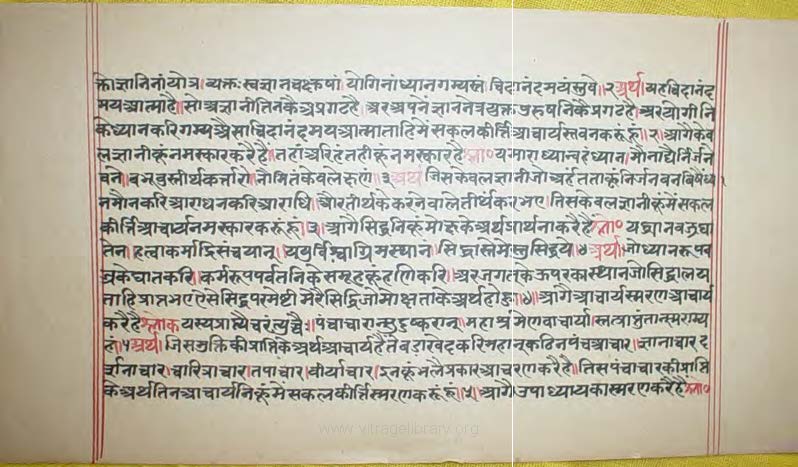 क्तो ज्ञानिनां योत्र। व्यक्तः स्वज्ञानचक्षुषां योगिनां ध्यानगम्यस्तं चिदानंदमयं स्तुवे॥२॥अर्थ॥ यह चिदानंद
मय आत्मा है॥ सो अज्ञानीनि के अप्रगट है॥ अर अपनें ज्ञाननेत्रयुक्त पुरुषनिकै प्रगट है॥ अर योगीनि
के ध्यान करि गम्य असा चिदानंदमय आत्मा ताहि में सकलकीर्त्ति आचार्य स्तवन करूं हूं॥२॥ आगे केव
लज्ञानीकूं नमस्कार करै हैं॥ तहां अरिहंतहीकूं नमस्कार है श्लो॰ यमाराध्यान्वहं ध्यान। मौनाद्यैर्निर्जन
वने॥ बभूवुस्तीर्थकर्त्तारो। नौमि तं केवलेक्षणं॥३ अर्थ जिस केवलज्ञानी जो अर्हंत ताकूं निर्जन वन विषें ध्या
न मौन करि आराधन करि आराधि॥ और तीर्थ के करनवाले तीर्थकर भए॥ तिस केवलज्ञानीकूं में सकल
कीर्त्ति आचार्य नमस्कार करूं हूं॥३॥ आगै सिद्धनिकूं मोक्ष के अर्थ प्रार्थना करै है श्लो॰ यध्यानवज्रघा
तेन। हत्वा कर्माद्रिसंचयान्। ययुर्विश्वाग्रिमस्थानं। सिद्धास्ते मेस्तु सिद्धये॥४ अर्थ॥ जो ध्यानरूप व
ज्र के घात करि॥ कर्मरूप पर्वतनि के समूहकूं हणि करि॥ अर जगत के ऊपर का स्थान जो सिद्धालय
ताहि प्राप्त भए ऐसे सिद्ध परमेष्टी मेरै सिद्धि जो मोक्ष ता के अर्थ होहु॥४॥ आगै आचार्य स्मरण आचार्य
करै है श्लोक यस्य प्राप्त्यै चरंत्युच्चैः। पंचाचारान्सुदुष्करान्॥ महाश्रमेणाचार्या। स्तत्प्राप्तुं तान्स्मराम्य
हं॥५ अर्थ॥ जिस मुक्ति की प्राप्ति के अर्थ आचार्य है ते बडा खेद करि महान् कठिन पंच आचार॥ ज्ञानाचार द
र्शनाचार। चारित्राचार। तपाचार। वीर्याचार। इनकूं भलै प्रकार आचरण करै है॥ तिस पंचाचार की प्राप्ति
के अर्थ तिन आचार्यनिकूं में सकलकीर्त्ति स्मरण करूं हूं॥५॥ आगै उपाध्याय का स्मरण करै हैं श्लो॰
www.vitragelibrary.org